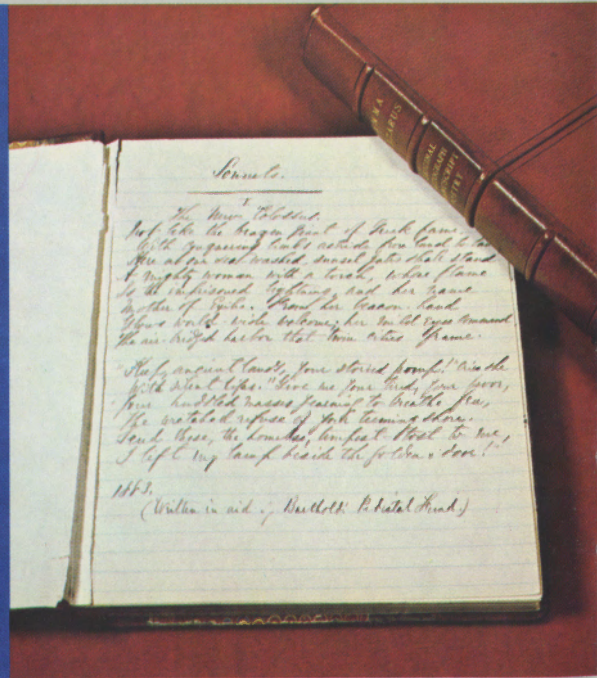 Sonnets.
I
The New Colossus.
Not like the brazen giant of Greek fame,
With conquering limbs astride from land to land;
Here at our sea-washed, sunset gates shall stand
A mighty woman with a torch, whose flame
Is the imprisoned lightning, and her name
Mother of Exiles. From her beacon-hand
Glows world-wide welcome; her mild eyes command
The air-bridged harbor that twin cities frame.
"Keep, ancient lands, your storied pomp!" cries she
With silent lips. "Give me your tired, your poor,
Your huddled masses yearning to breathe free,
The wretched refuse of your teeming shore.
Send these, the homeless, tempest-tost to me,
I lift my lamp beside the golden door!"
1883.
(Written in aid of Bartholdi Pedestal Fund.)
EMMA
LAZARUS
ORIGINAL
AUTOGRAPH
MANUSCRIPT
POETRY